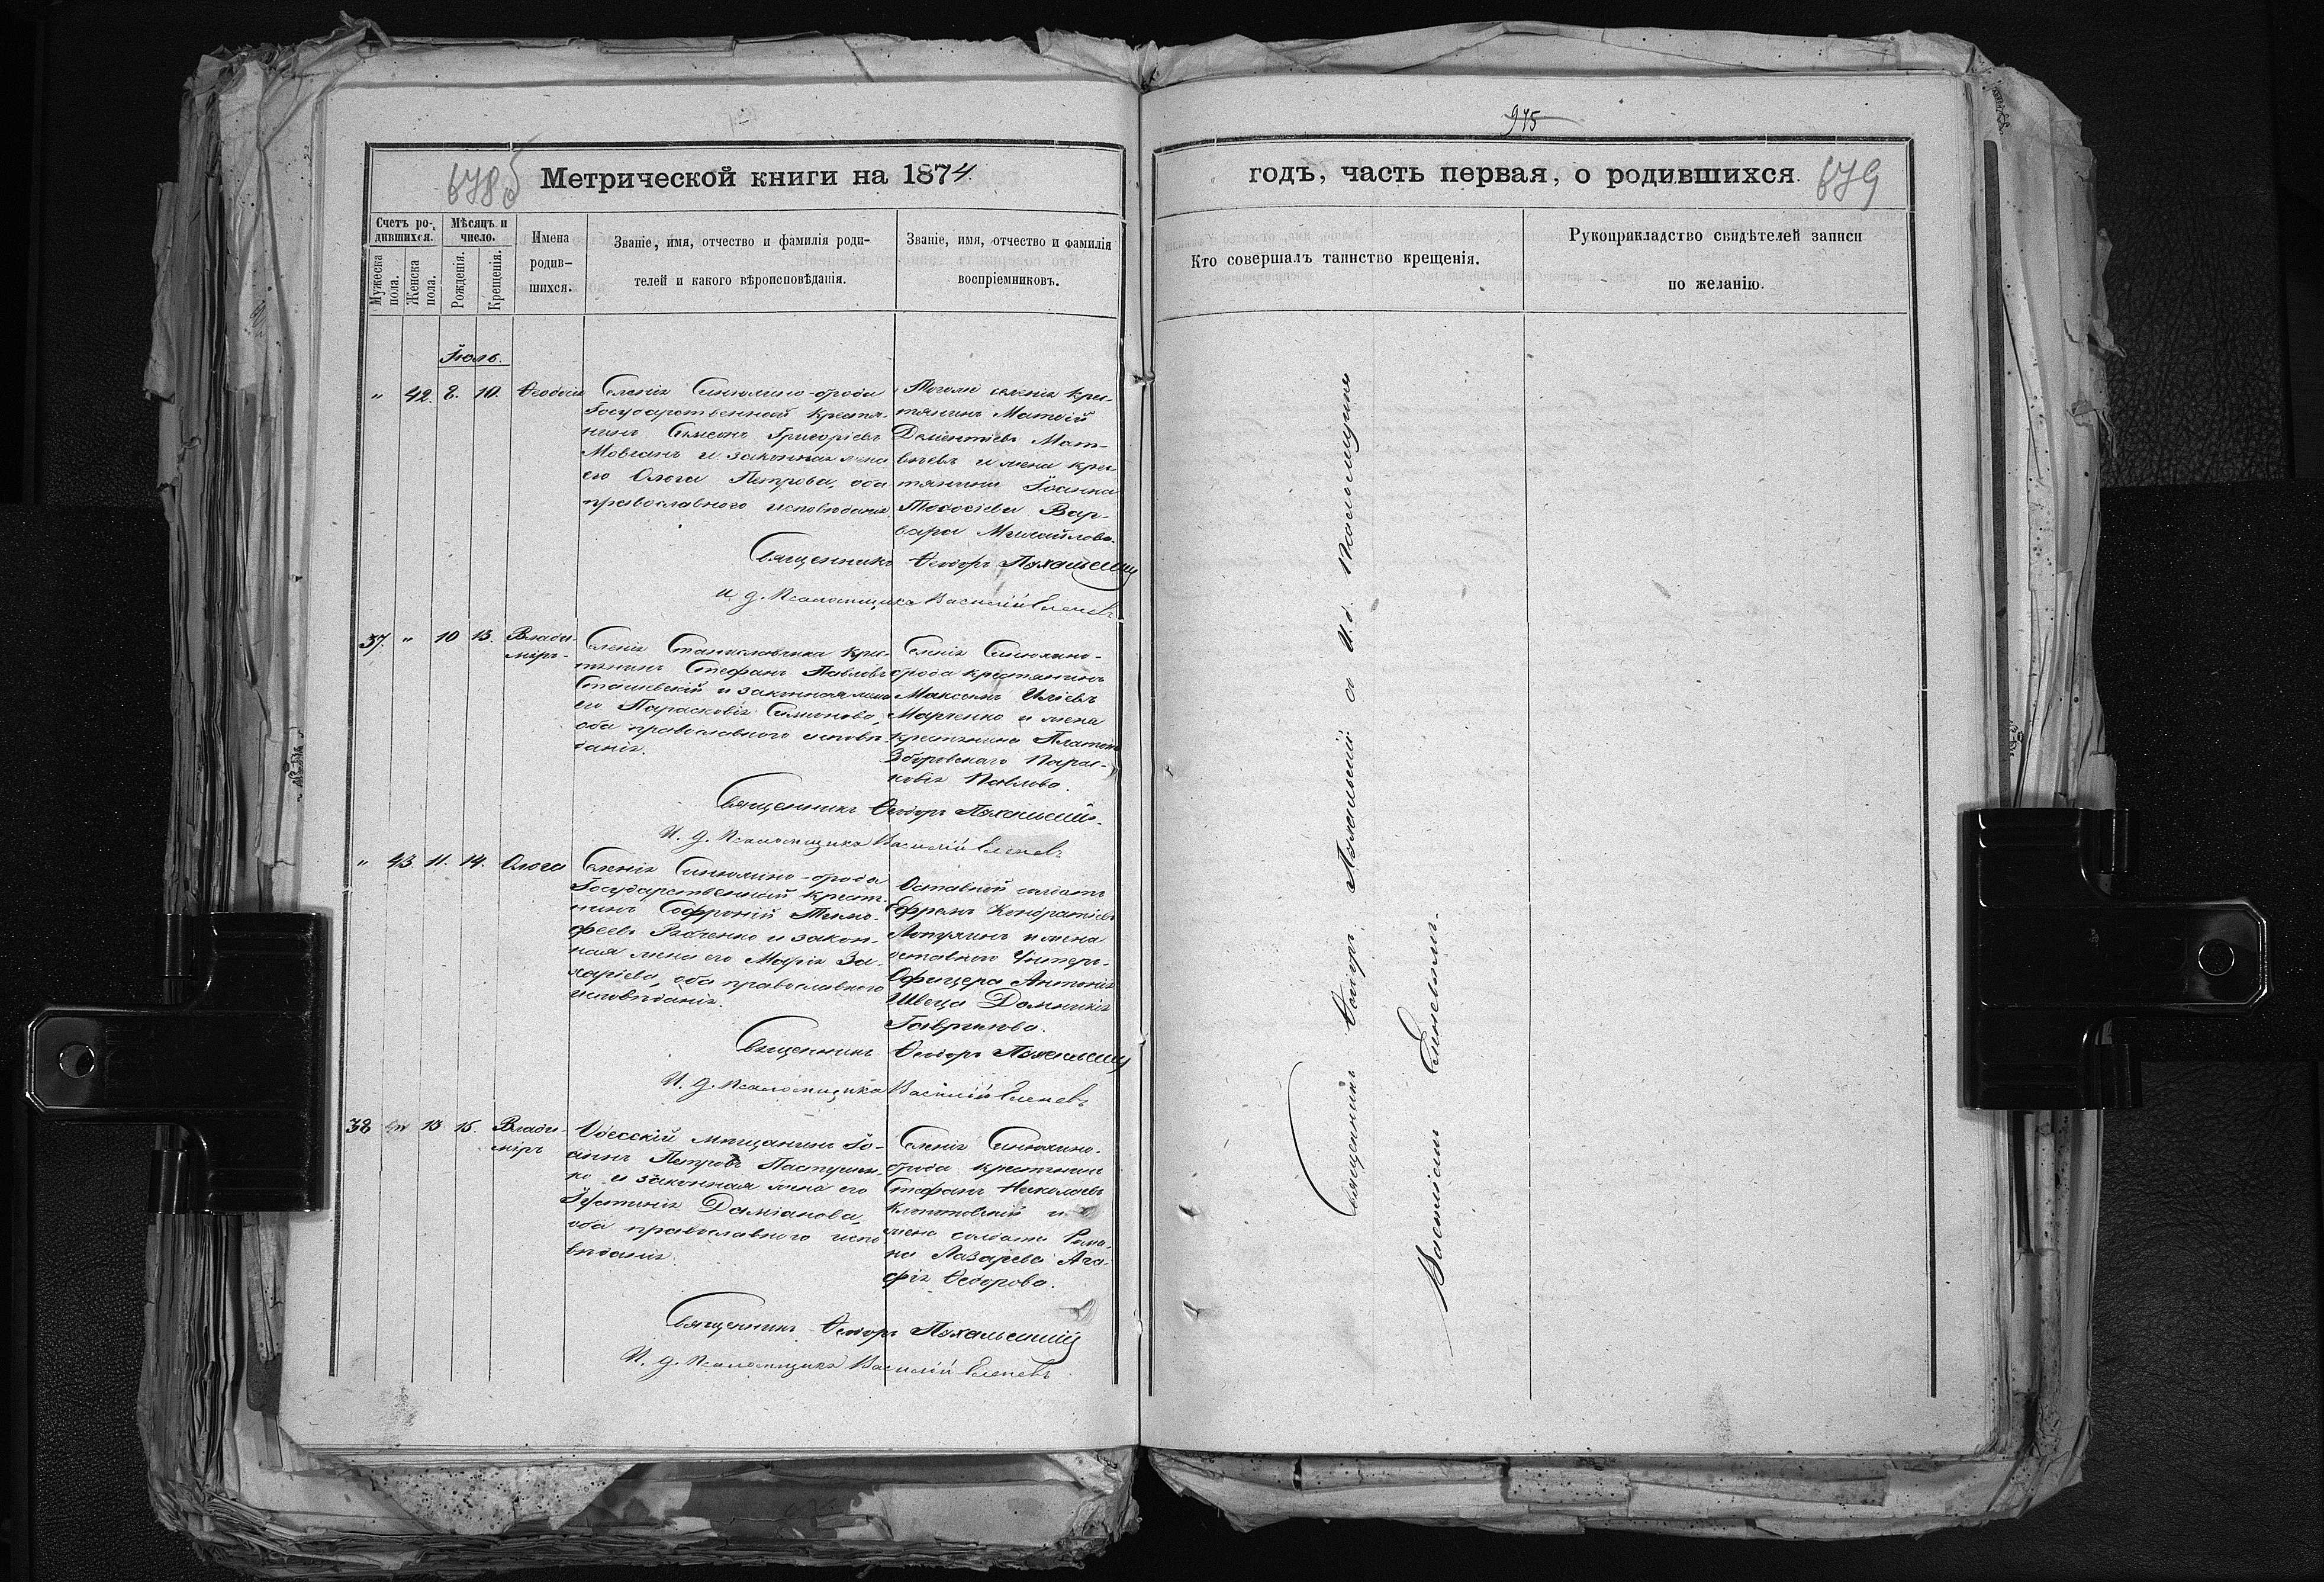 678б
Метрической книги на 1874.
Счетъ ро-
дившихся.
Мѣсяцъ и
число.
Мужеска
пола.
Женска
пола.
Рожденія.
Крещенія.
Имена
родив-
шихся.
Званіе, имя, отчество и фамилія роди-
телей и какого вѣроисповѣданія.
Званіе, имя, отчество и фамилія
воспріемниковъ.
Іюль.
" 42. 8. 10. Ѳеодосія
Селенія Синюхино-брода
Государственный крестя-
нинъ Сѵмеонъ Григоріевъ
Мовчанъ и законная жена
его Ольга Петрова, оба
православного исповѣданія
Тогожъ селенія крес-
тянинъ Матѳій
Дементіевъ Мат-
вѣевъ и жена крес-
тянина Іоанна
Варвара Михайлова.
Священникъ Ѳеодоръ Пухальскій
И д. Псаломщика Василій Еленевъ
37. " 10 13. Влади-
міръ.
Селенія Станиславчика крес-
тянинъ Стефанъ Павловъ
и законная жена
его Параскевія Симонова,
оба православного исповѣ-
данія.
Селенія Синюхино-
брода крестянинъ
Максимъ Иліевъ
Марченко и жена
крестянина Платона
Зборовскаго Парас-
кевія Павлова.
Священникъ Ѳеодоръ Пухальскій.
И. д. Псаломщика Василій Еленевъ
" 43. 11. 14. Ольга
Селенія Синюхино-брода
Государственный крестя-
нинъ Софроній Тимо-
феевъ Радченко и закон-
ная жена его Марія За-
харіева, оба православного
исповѣданія.
Отставной солдатъ
Ефремъ Кондратіевъ
Лопухинъ и жена
отставного Унтеръ-
Офицера Антонія
Швеца Домникія
Гаврилова.
Священникъ Ѳеодоръ Пухальскій
И. д. Псаломщика Василій Еленевъ
38 " 13 15. Влади-
міръ
Одесскій мѣщанинъ Іо-
аннъ Петровъ Пастушен-
ко и законная жена его
Іустинія Даміанова,
оба православного испо
вѣданія.
Селенія Синюхино-
брода крестянинъ
Стефанъ Николаевъ
Клопотовскій и
жена солдата Рома-
на Лазарева Ага-
фія Ѳедорова.
Священникъ Ѳеодоръ Пухальскій
И. д. Псаломщика Василій Еленевъ
945
годъ, часть первая, о родившихся.
679
Кто совершалъ таинство крещенія.
Рукоприкладство свидѣтелей записи
по желанію.
Священникъ Ѳеодоръ Пухальскій съ И. д. псаломщика
Василіемъ Еленевымъ.